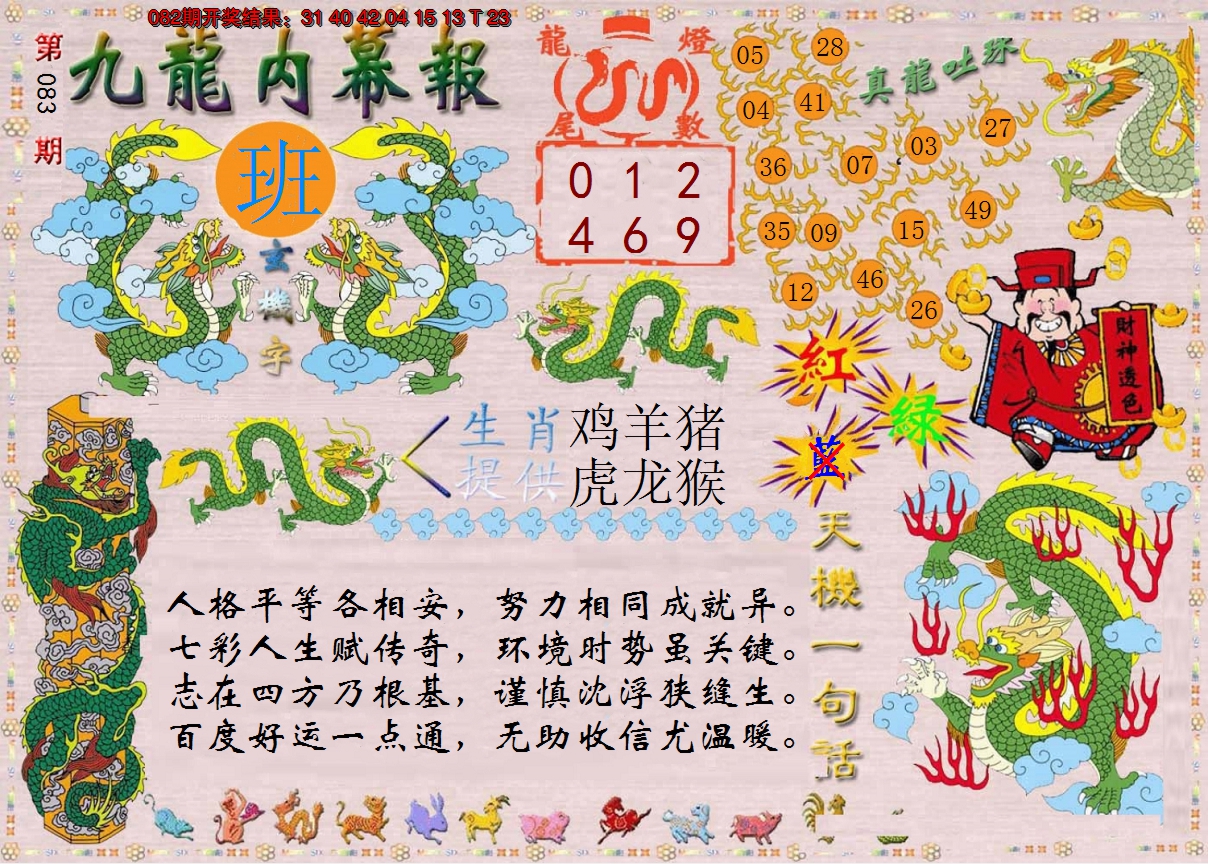 082期开奖结果：31 40 42 04 15 13 T 23
第083期
九龍内幕報
班
玄機字
龍燈尾數
0 1 2
4 6 9
真龍吐珠
05 28
04 41
36 07 03 27
35 09 15 49
12 46 26
財神透色
紅
綠
藍
生肖提供
鸡羊猪
虎龙猴
天機一句話
人格平等各相安，努力相同成就异。
七彩人生赋传奇，环境时势虽关键。
志在四方乃根基，谨慎沈浮狭缝生。
百度好运一点通，无助收信尤温暖。